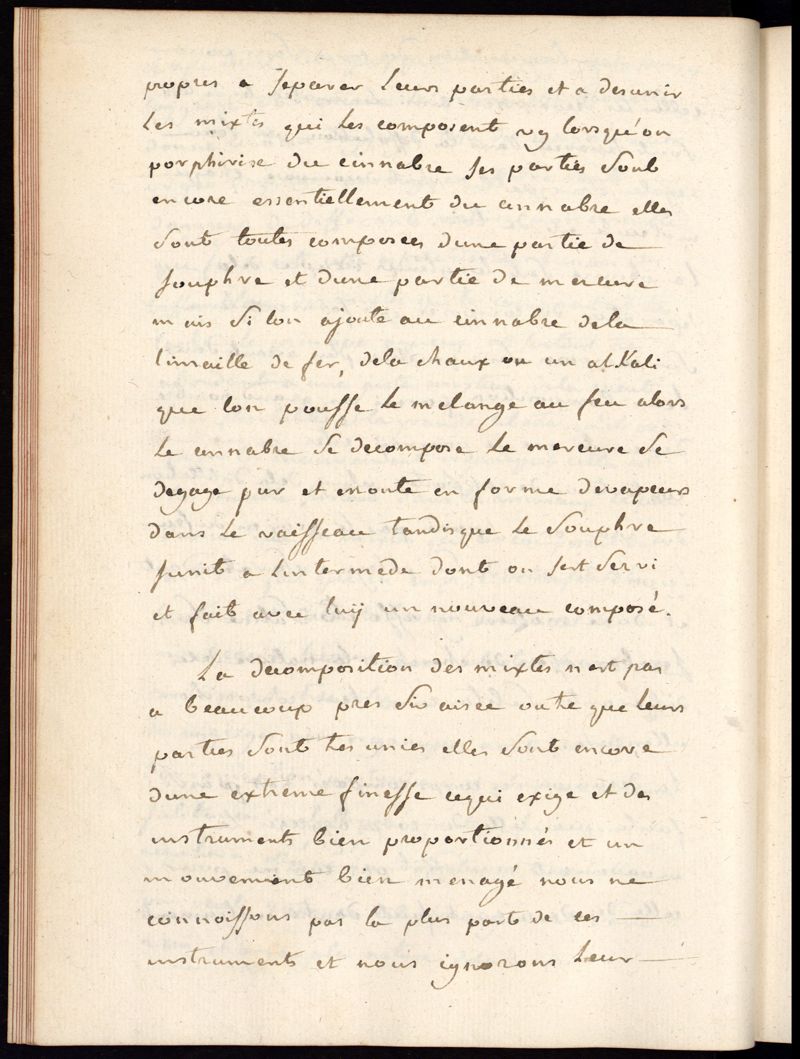 propres a separer leurs parties et a desunir
les mixtes qui les composent vg lorsqu'on
porphirise du cinnabre ses parties sont
encore essentiellement du cinnabre elles
sont toutes composées dune partie de
souphre et dune partie de mercure
mais si lon ajoute au cinnabre dela
limaille de fer, dela chaux ou un alkali
que lon pousse le melange au feu alors
le cinnabre se decompose le mercure se
degage pur et monte en forme devapeurs
dans le vaisseau tandisque le souphre
sunit a lintermede dont on sest servi
et fait avec luy un nouveau composé.
La decomposition des mixtes nest pas
a beaucoup pres si aisee outre que leurs
parties sont tres unies elles sont encore
dune extreme finesse cequi exige et des
instruments bien proportionnés et un
mouvement bien menagé nous ne
connoissons pas la plus part de ces
instruments et nous ignorons leur